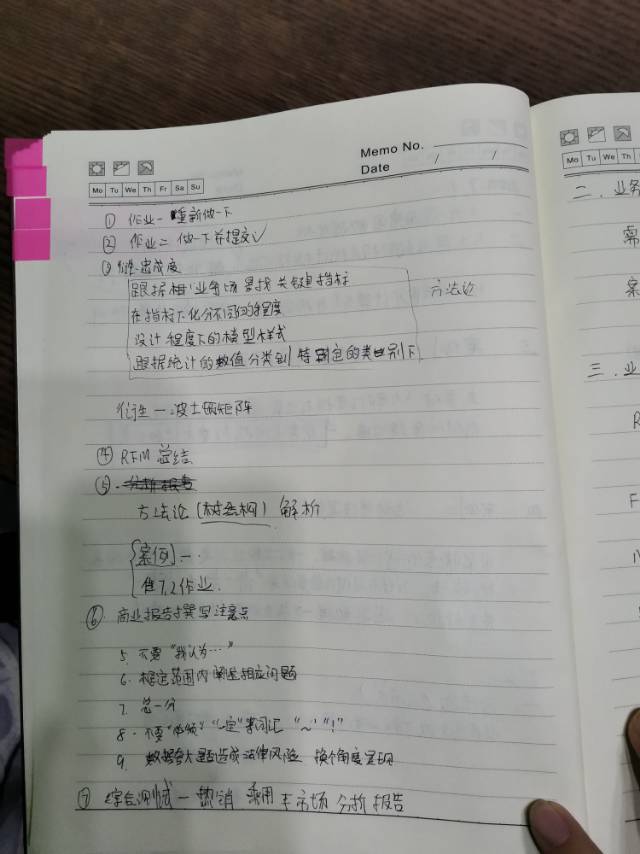 Memo No.
Date / /
Mo Tu We Th Fr Sa Su
① 作业一 重新做一下
② 作业二 做一下并提交✓
③ 达成度
跟据相业务场景找关键指标
在指标下化分不同的程度
设计程度下的模型样式
跟据统计的数值分类到特定的类别下
方法论
衍生一波士顿矩阵
④ RFM 总结
⑤ 分析报告
方法论 (树结构) 解析
案例一
作业
⑥ 商业报告撰写注意点
5. 不要"我认为…"
6. 框定范围内阐述相应问题
7. 总一分
8. 不要"必须""一定"等词汇 "~" "!"
9. 数据夸大 造成法律风险 换个角度呈现
⑦ 综合测试一热销乘用车市场分析报告
Mo Tu We Th
二、业务
案
三、业
R
F